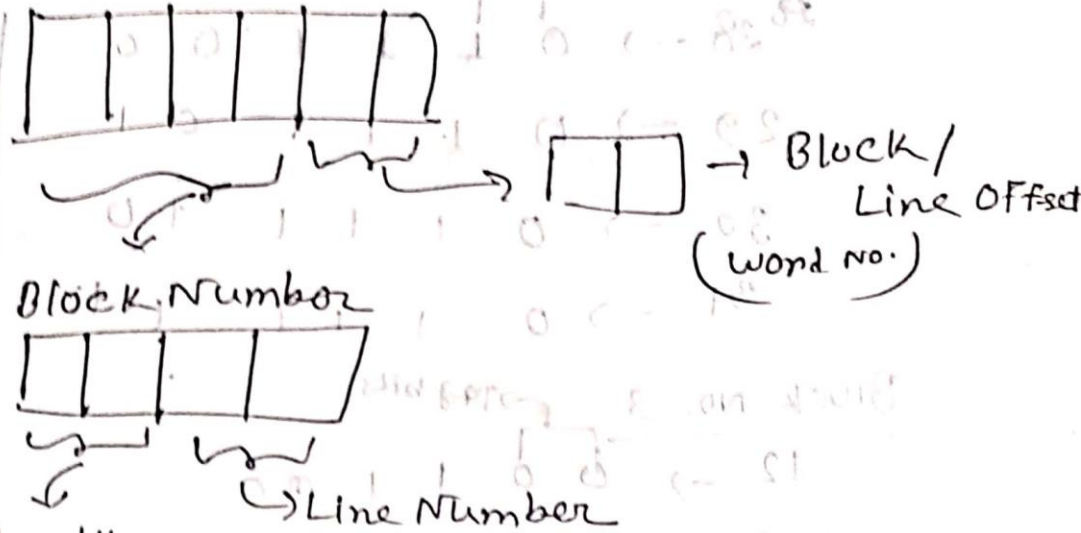 → Block/
Line Offset
(Word No.)
Block Number
Line Number